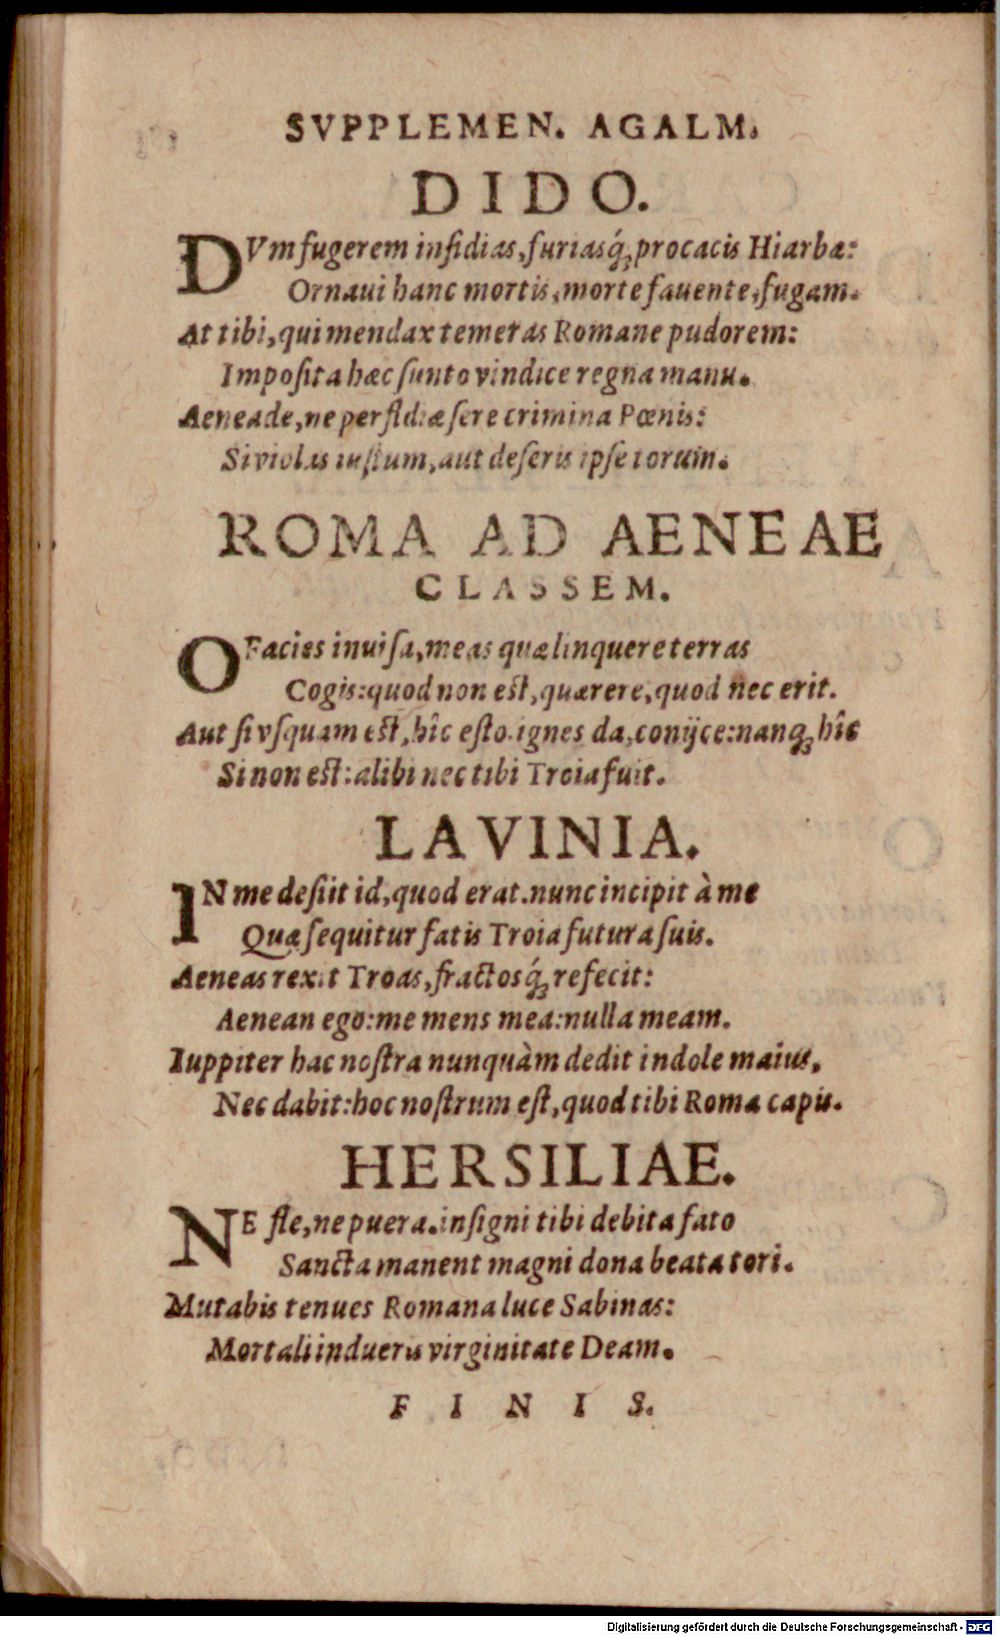 SVPPLEMEN. AGALM.
DIDO.
DVm fugerem insidias, furiasq́; procacis Hiarbæ:
Ornaui hanc mortis, morte fauente, fugam.
At tibi, qui mendax temeras Romane pudorem:
Imposita hæc sunto vindice regna manu.
Aeneade, ne perfidiæ fere crimina Pœnis:
Si violas iustum, aut deseris ipse torum.
ROMA AD AENEAE
CLASSEM.
O Facies inuisa, meas quæ linquere terras
Cogis: quod non est, quærere, quod nec erit.
Aut si vsquam est, hîc esto. ignes da, conijce: nanq; hîc
Si non est: alibi nec tibi Troia fuit.
LAVINIA.
IN me desiit id, quod erat. nunc incipit à me
Quæ sequitur fatis Troia futura suis.
Aeneas rexit Troas, fractosq́; refecit:
Aenean ego: me mens mea: nulla meam.
Iuppiter hac nostra nunquàm dedit indole maius,
Nec dabit: hoc nostrum est, quod tibi Roma capis.
HERSILIAE.
NE fle, ne puera. insigni tibi debita fato
Sancta manent magni dona beata tori.
Mutabis tenues Romana luce Sabinas:
Mortali indueris virginitate Deam.
FINIS.
Digitalisierung gefördert durch die Deutsche Forschungsgemeinschaft - DFG